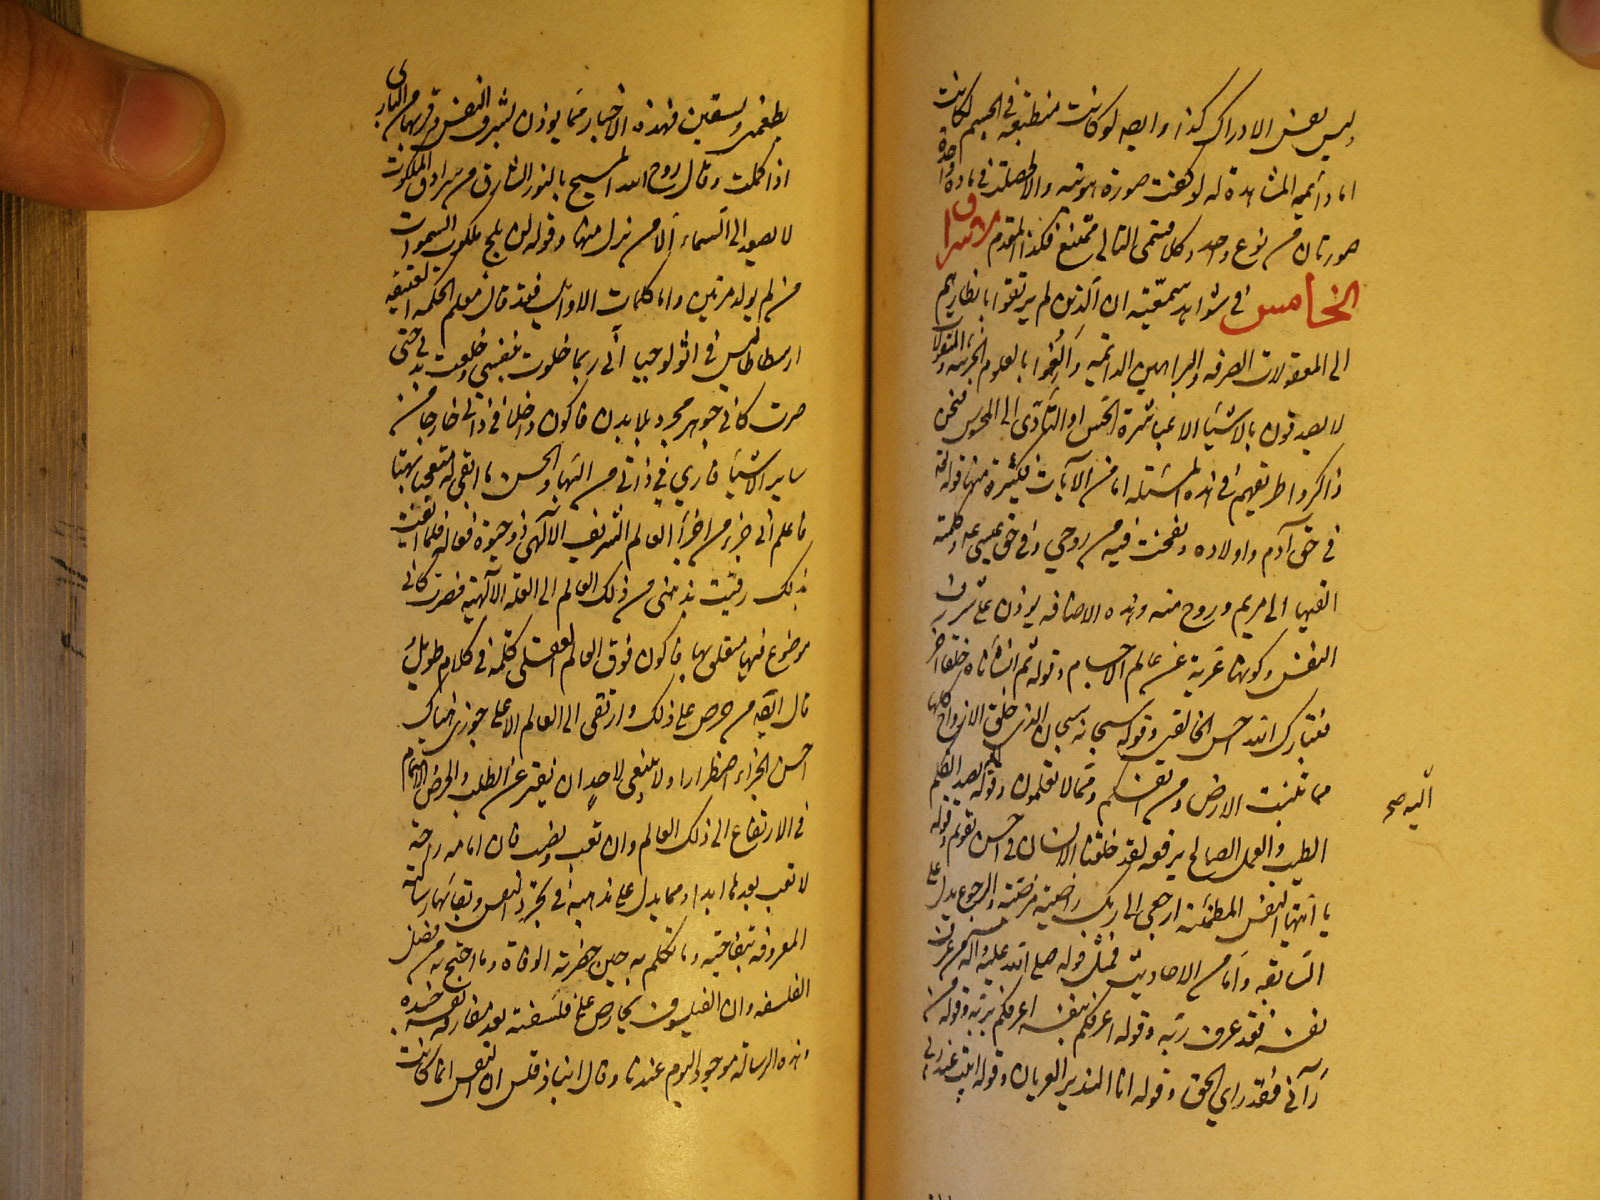 ليس بعض الادراك كذا وايضا لو كانت منطبعة فى الجسم لكانت
اما دائمة المشاهدة له لو كفت صورة هويته والا لحصلت فى مادة واحدة
صورتان من نوع واحد وكلا قسمى التالى ممتنع فكذا المقدم الاشراق
الخامس فى شواهد سمعية ان الذين لم يرتقوا بانظارهم
الى المعقولات الصرفة والبراهين الدائمة والفوا بالعلوم الجزئية والمنقولات
لا يصدقون بالاشياء الا بمباشرة الحس او التأدى الى المحسوس فنحن
ذاكروا طريقهم فى هذه المسئلة اما من الآيات فكثيرة منها قوله تعالى
فى حق آدم واولاده ونفخت فيه من روحي وفى حق عيسى ع وكلمته
القيها الى مريم وروح منه وهذه الاضافة يوذن على شرف
النفس وكونها عرية عن عالم الاجسام وقوله ثم انشأناه خلقا آخر
فتبارك الله احسن الخالقين وقوله سبحانه سبحان الذى خلق الازواج كلها
مما تنبت الارض ومن انفسكم ومما لا تعلمون وقوله اليه يصعد الكلم
اليه صح
الطيب والعمل الصالح يرفعه لقد خلقنا الانسان فى احسن تقويم وقوله
يا ايتها النفس المطمئنة ارجعى الى ربك راضية مرضية والرجوع يدل على
السابقة واما من الاحاديث فمثل قوله صلى الله عليه وآله من عرف
نفسه فقد عرف ربه وقوله اعرفكم بنفسه اعرفكم بربه وقوله من
رآنى فقد راى الحق وقوله انا النذير العريان وقوله ابيت عند ربى
يطعمنى ويسقين فهذه الاخبار مما يوذن لشرف النفس وقربها من البارى
اذا كملت وقال روح الله المسيح بالنور الشارق من سرادق الملكوت
لا يصعد الى السماء الا من نزل منها وقوله لن يلج ملكوت السموات
من لم يولد مرتين واما كلمات الاوائل فقد قال معلم الحكمة العتيقة
ارسطاطاليس فى اثولوجيا انى ربما خلوت بنفسى وخلعت بدنى حتى
صرت كانى جوهر مجرد بلا بدن فاكون داخلا فى ذاتى خارجا من
ساير الاشياء فارى فى ذاتى من البهاء والحسن ما ابقى له متعجبا بهتا
فاعلم انى جزء من اجزاء العالم الشريف الالهى ذو حيوة فعالة فلما ايقنت
بذلك رقيت بذهنى من ذلك العالم الى العلة الآلهية فصرت كانى
موضوع فيها متعلق بها فاكون فوق العالم العقلى كله فى كلام طويل
قال ايضا من حرص على ذلك وارتقى الى العالم الاعلى جوزى هناك
احسن الجزاء اضطرارا ولا ينبغى لاحد ان يفتر عن الطلب والحرض الاتمام
فى الارتفاع الى ذلك العالم وان تعب ونصب فان امامه راحة
لا تعب بعدها ابدا ومما يدل على مذهبه فى تجرد النفس وبقائها رسالته
المعروفة بتفاحيه وما تكلم به حين حضرته الوفاة وما احتج به من فضل
الفلسفة وان الفيلسوف يجازى على فلسفته بعد مفارقة نفسه جسده
وهذه الرسالة موجودة اليوم عندنا وقال انباذقلس ان النفس انما كانت